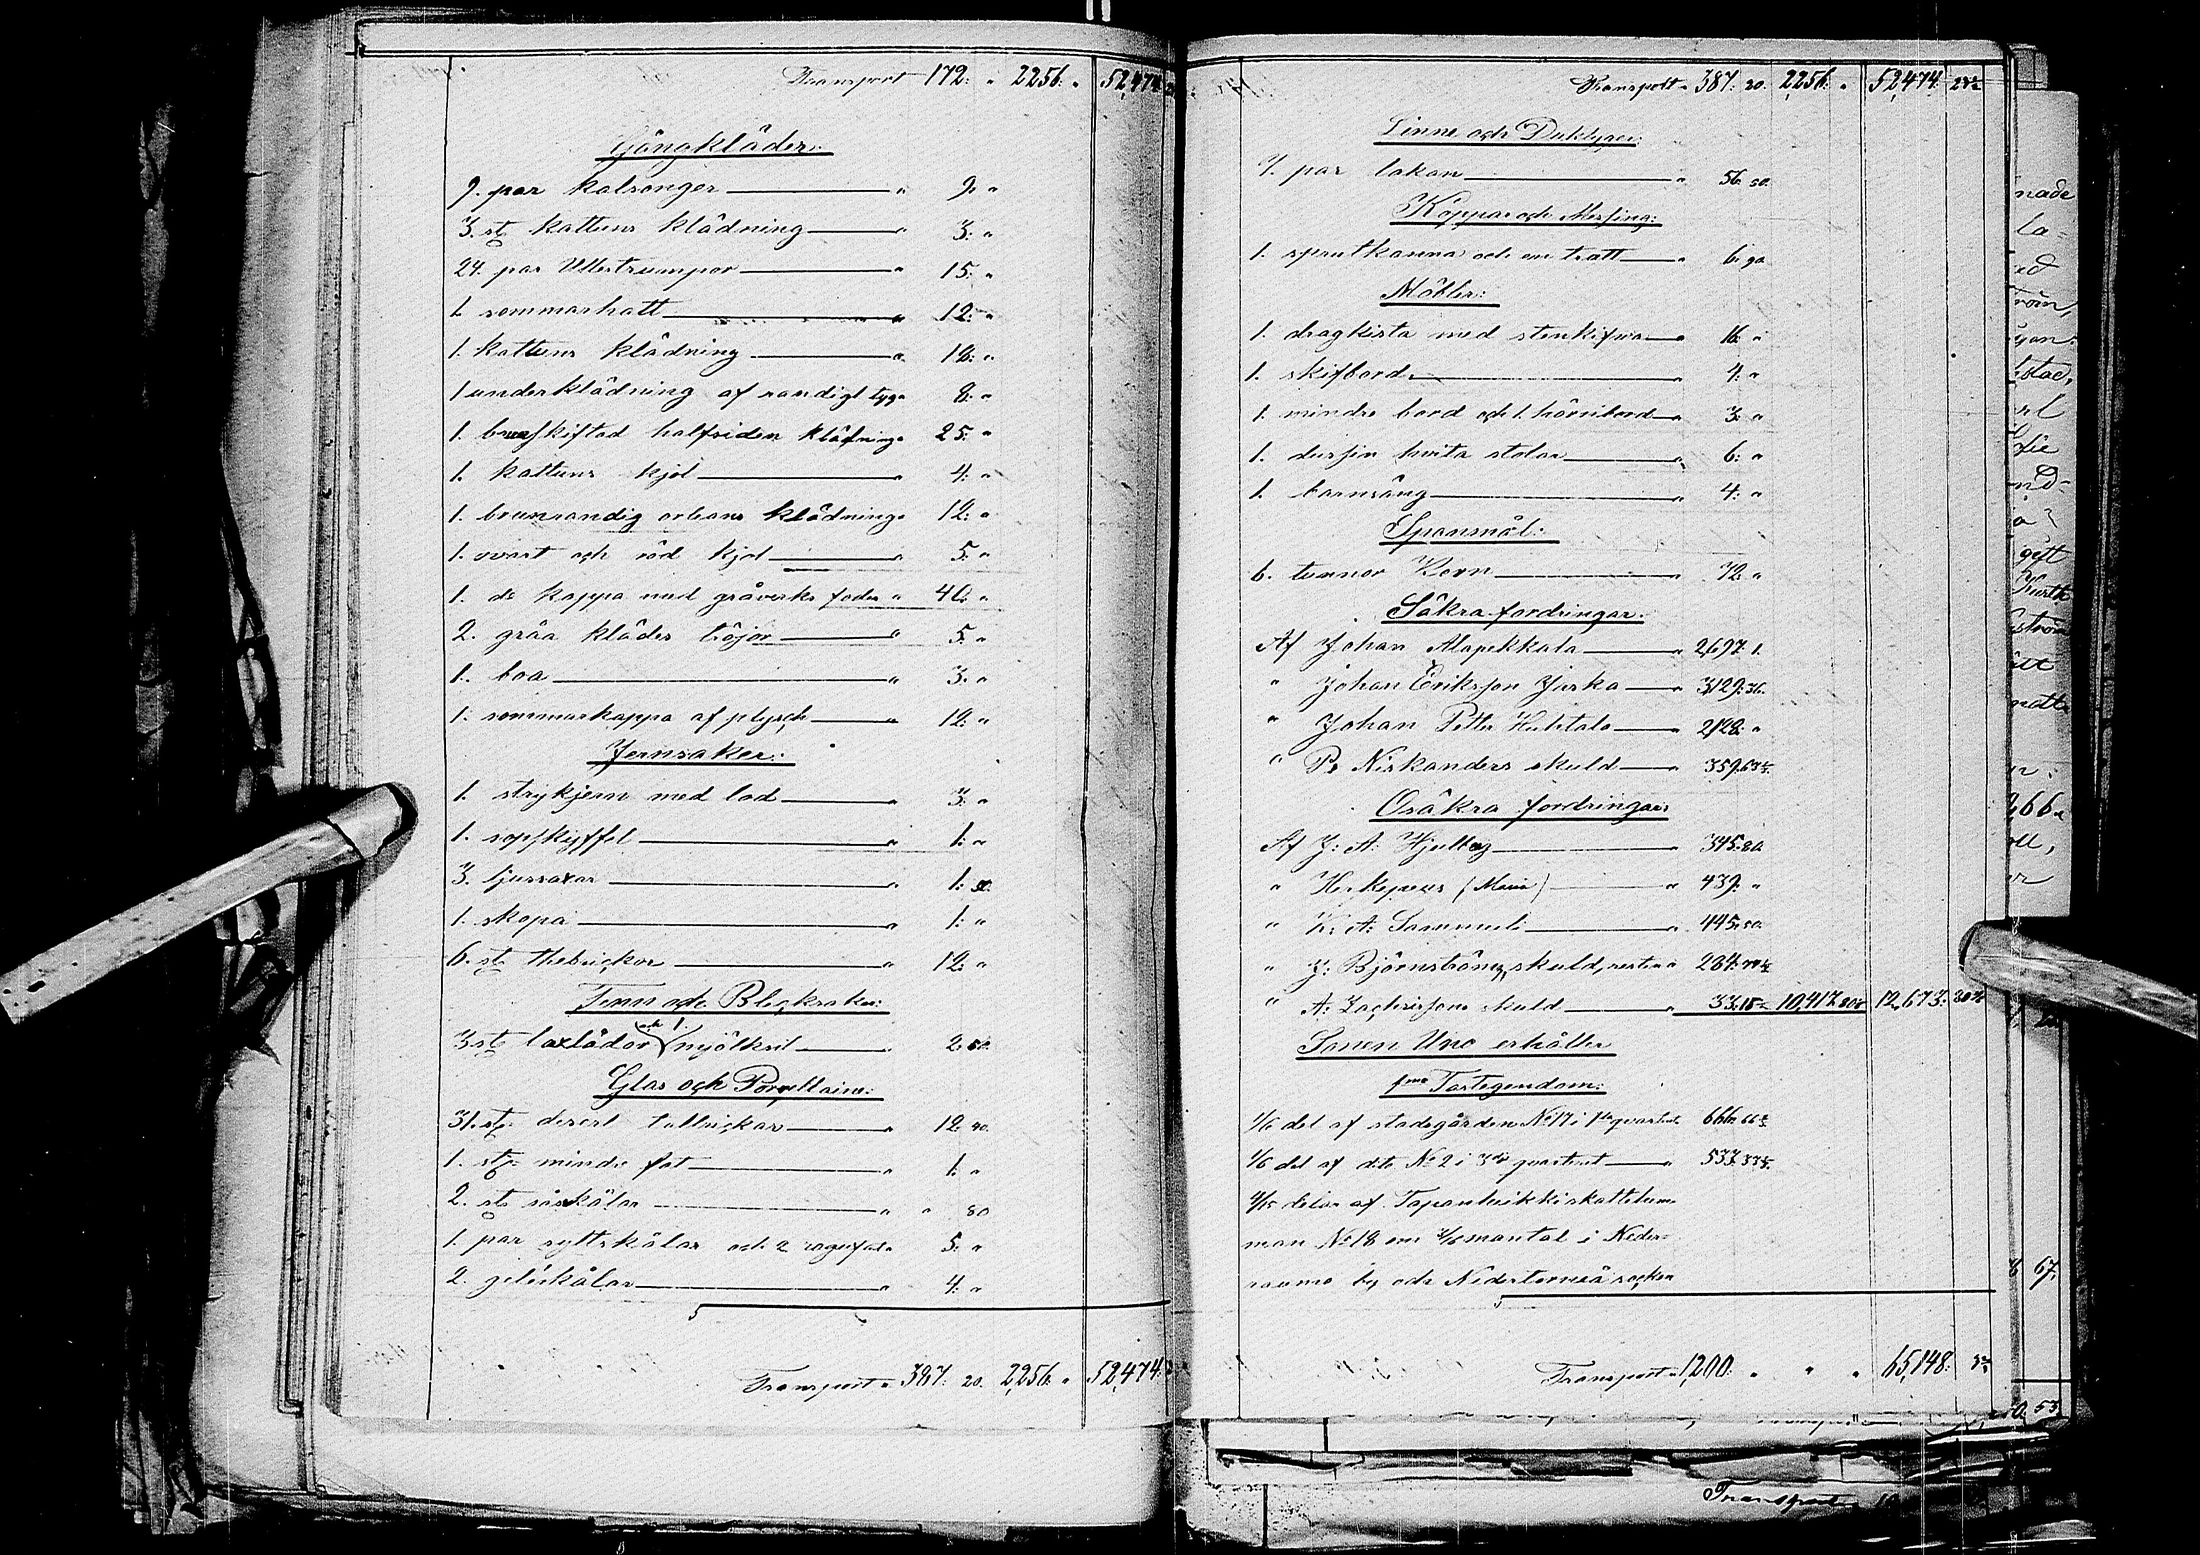 Transport 172: " 2256. " 52,474.
Gångkläder:
9. par kalsonger " 9. "
3. st kattuns klädning " 3. "
24. par Ullstrumpor " 15. "
1. sommarhatt " 12. "
1. kattuns klädning " 18. "
1 underklädning af randigt tyg " 8. "
1. halfsiden klädning " 25. "
1. kattuns kjol " 4. "
1. brunrandig orleans klädning " 12. "
1. svart och röd kjol " 5. "
1. do kappa med gråverks foder " 40. "
2. gråa klädes tröjor " 5. "
1. boa " 3. "
1. sommarkappa af plysch " 12. "
Jernsaker:
1. strykjern med lod " 3. "
1. sopskyffel " 1. "
3. ljussaxar " 1. 50.
1. skopa " 1. "
6. st thebrickor " 12. "
Tenn och Blecksaker:
3 st laxlådor och 1. mjölksil " 2. 50.
Glas och Porcellaine:
31. st. desert tallrickar " 12. 40.
1. st. mindre fat " 1. "
2. st såsskålar " " 80
1. par syltskålar och 2 " 5. "
2. geléskålar " 4. "
Transport " 387. 20. 2,256. " 52,474.
Transport " 387. 20. 2,256. " 52,474.
Linne och Duktyger:
7. par lakan " 56. 50.
Koppar och Messing:
1. sprutkanna och en tratt " 6. 90.
Möbler:
1. dragkista med stenskifva " 16. "
1. skifbord " 4. "
1. mindre bord och 1. hörnbord " 3. "
1. dussin hvita stolar " 6. "
1. barnsäng " 4. "
Spanmål:
6. tunnor Korn " 72. "
Säkra fordringar:
Af Johan Alapekkala " 2,697. 1.
" Johan Eriksson Juska " 3129. 36.
" Johan Petter Huhtala " 2,128. "
" Ps Niskanders skuld " 359.
Osäkra fordringar:
Af J: A: Hjulberg " 345. 80.
" (Maria) " 439. "
" K. A: Sammeli " 445. 50.
" J: Björnströms skuld, resten " 284.
" A: Zachrissons skuld " 33. 10,417. 12,673.
Sonen Uno erhåller
Fastegendom:
1/6 del af stadsgården No 17 i 1sta quarteret 666. 66
1/6 del af dito No 2 i 3dje quarteret " 533. 33
delar af Tapanheikki skattehem
man No 18 om mantal i Neder-
raumo by och Nedertorneå socken
Transport " 1,200. " " " 65,148.
nade
la-
ed
röm,
gett
266.
67.
53
Transport